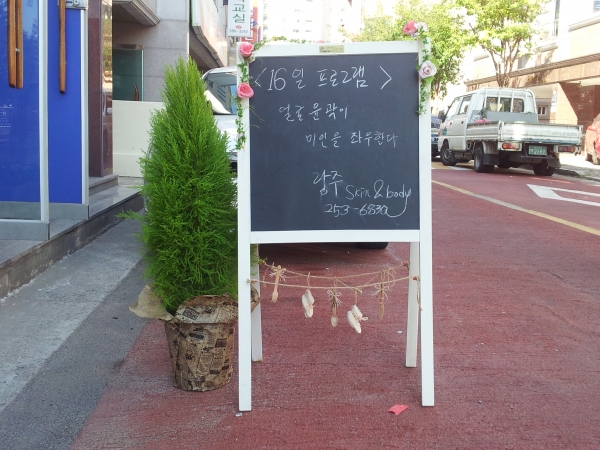 교실
<16일 프로그램>
얼굴윤곽이
미인을 좌우한다
광주 Skin & body
253-6830